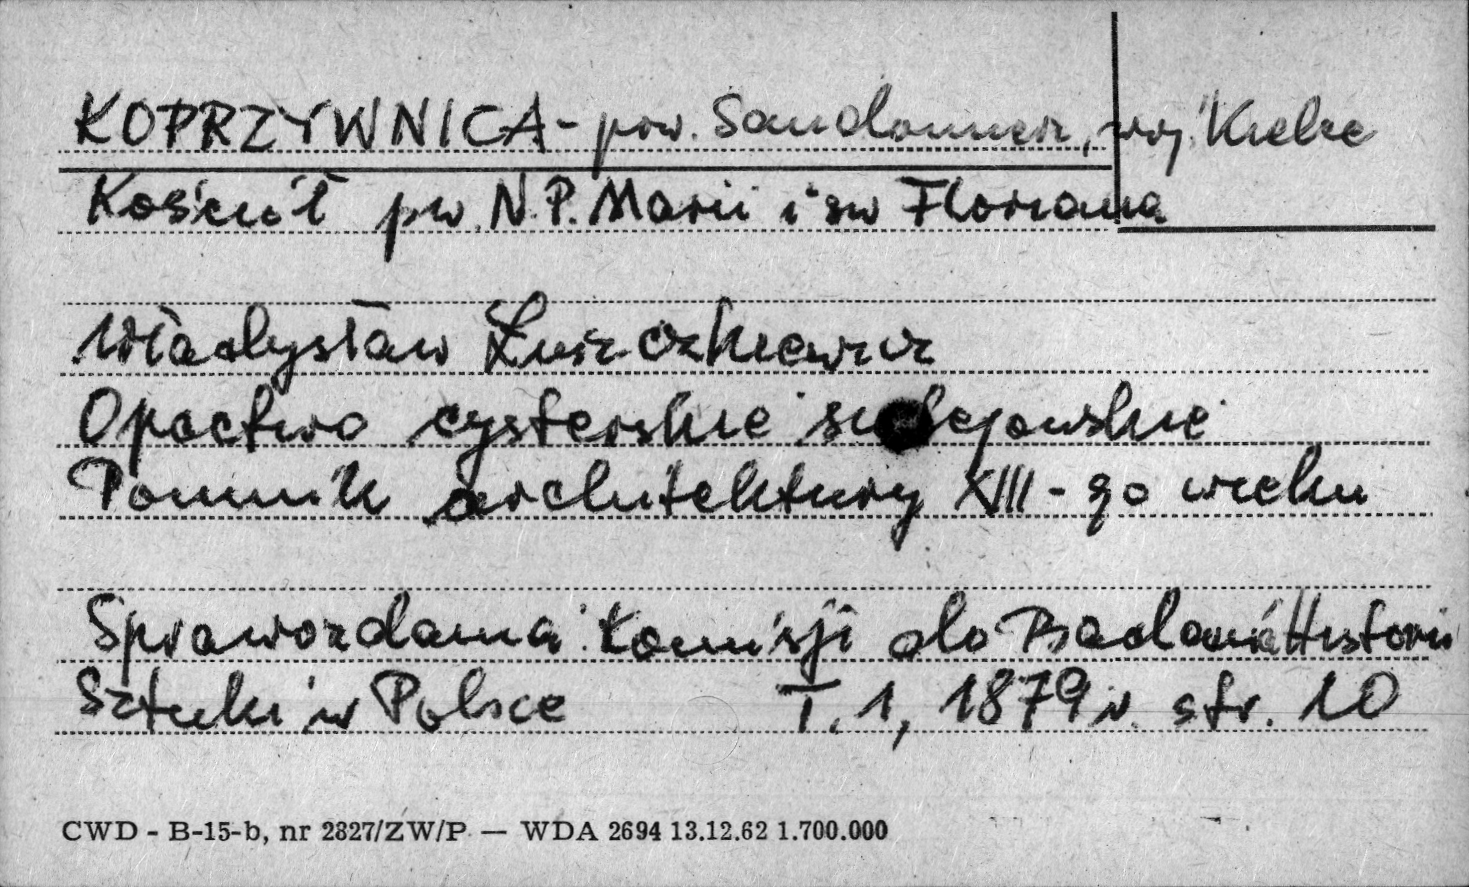 KOPRZYWNICA - pow. Sandomierz, woj. Kielce
Kościół pw. N.P. Marii i św Floriana
Władysław Łuszczkiewicz
Opactwo cysterskie sulejowskie
Pomnik architektury XIII-go wieku
Sprawozdania Komisji do Badania Historii
Sztuki w Polsce T. 1, 1879 r. str. 10
CWD - B-15-b, nr 2827/ZW/P — WDA 2694 13.12.62 1.700.000